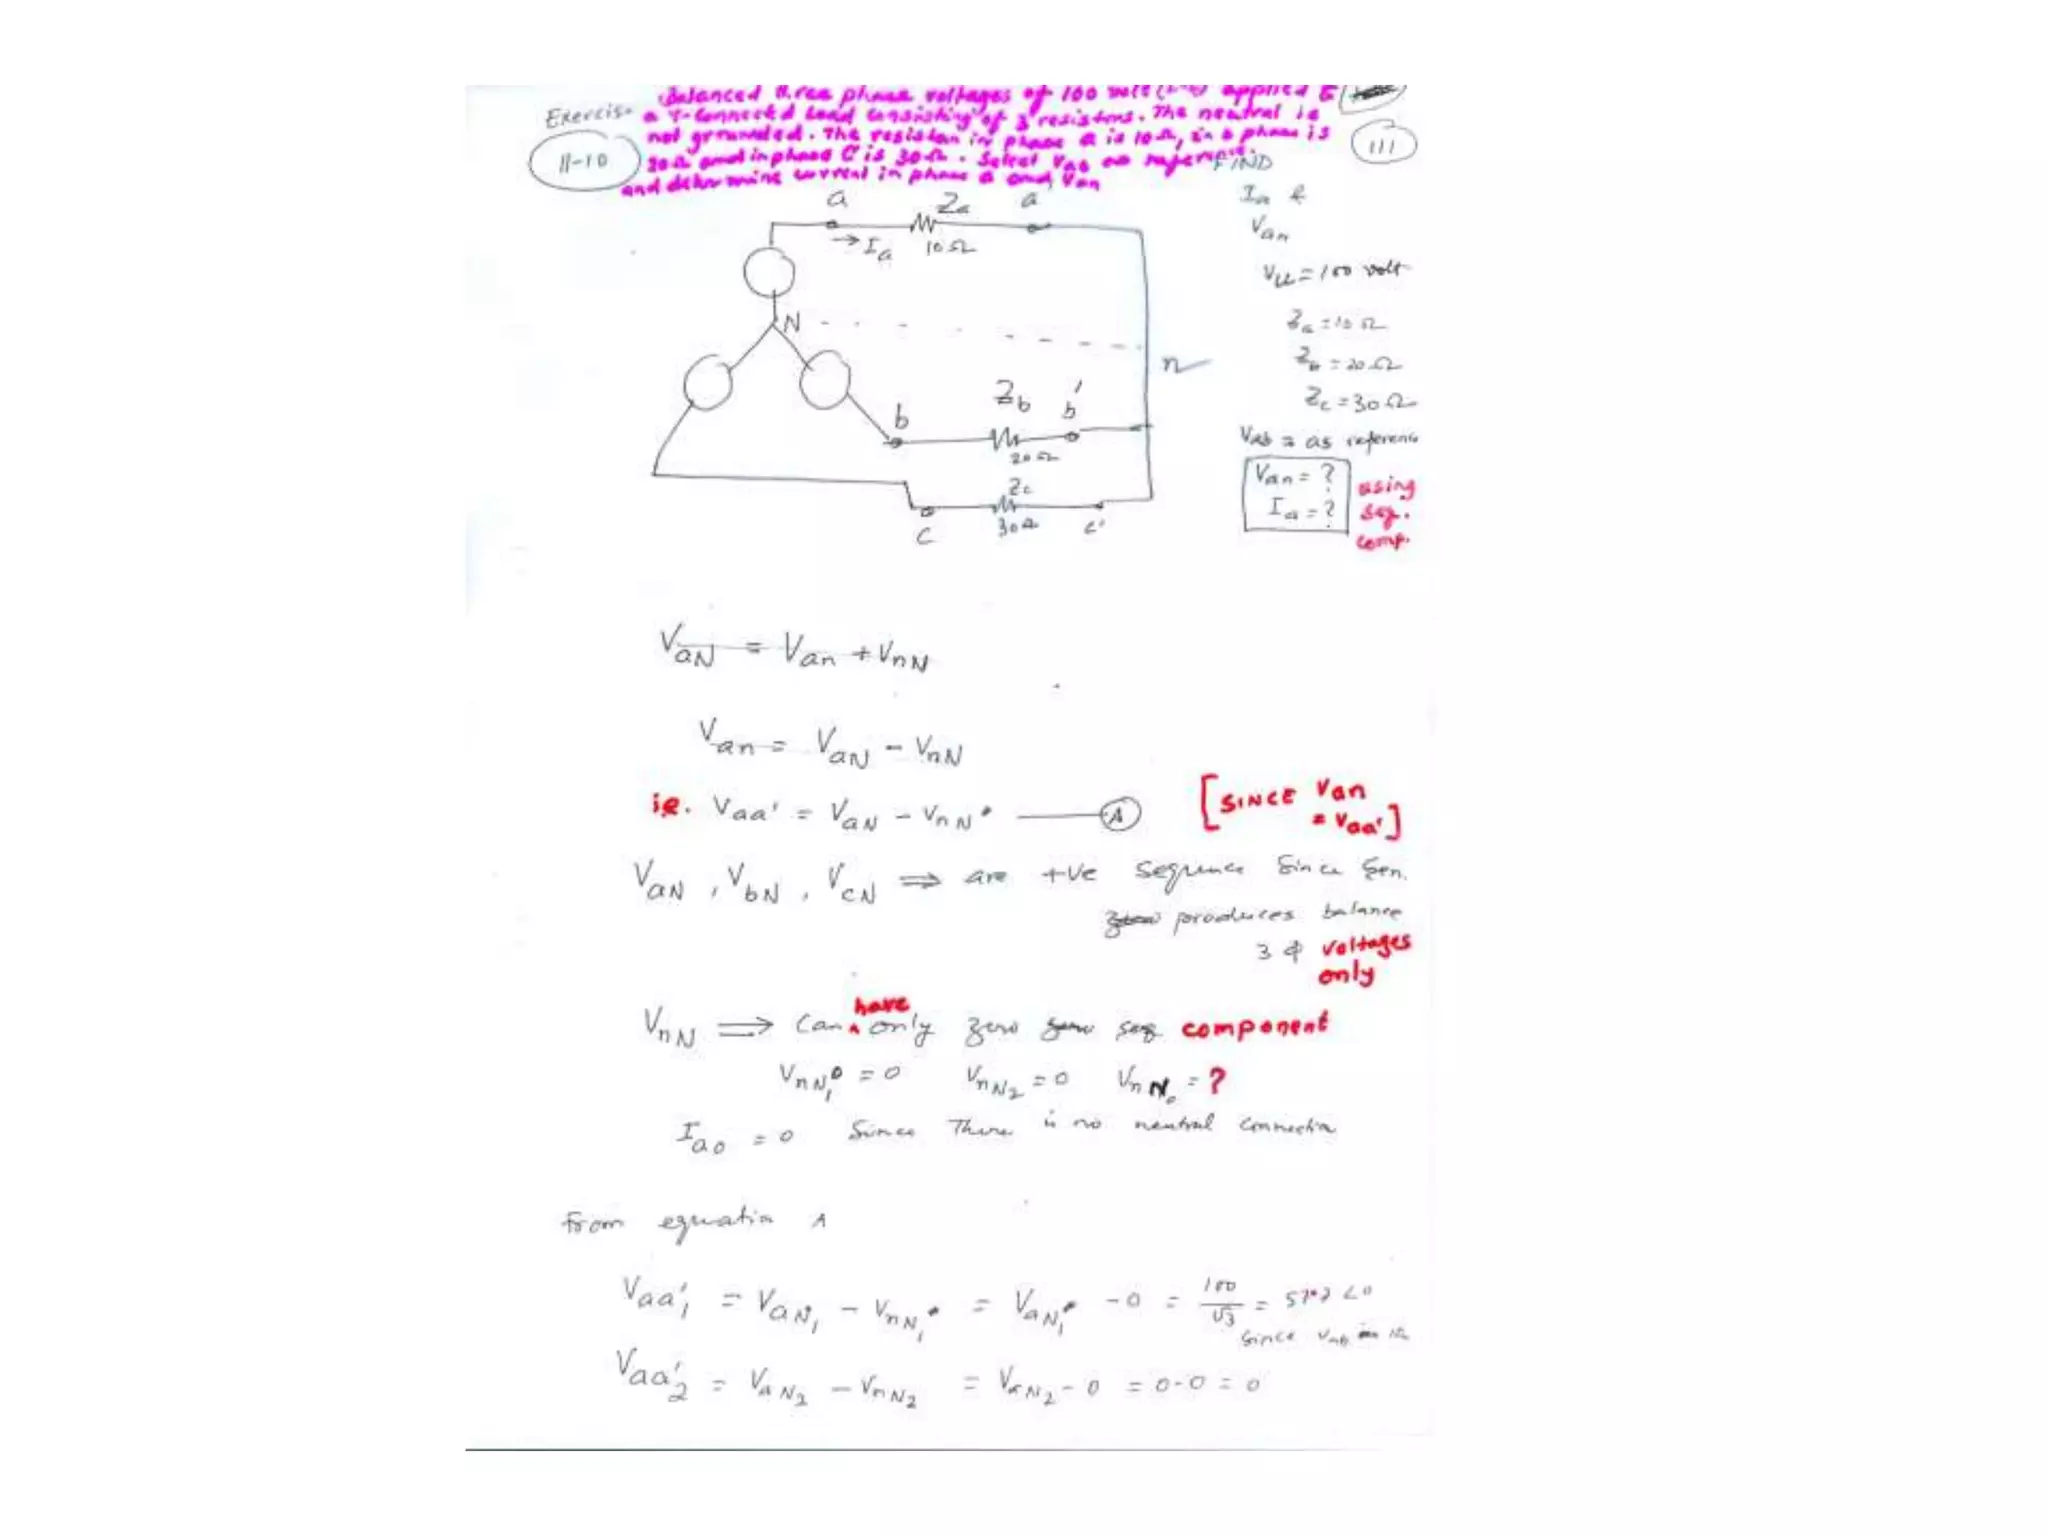 Exercise
11-10
Balanced three phase voltages of 100 volt applied to
a Y-Connected Load consisting of 3 resistors. The neutral is
not grounded. The resistan in phase a is 10Ω, in b phase is
20Ω and in phase C is 30Ω. Select Vab as reference.
and determine current in phase a and Van
111
FIND
Ia &
Van
VLL = 100 volt
Za = 10 Ω
Zb = 20 Ω
Zc = 30 Ω
Vab = as referenc
Van = ?
Ia = ?
using
seq.
comp.
a Za a'
→ Ia 10Ω
N
n
b Zb b'
20Ω
Zc
C 30Ω c'
VaN = Van + VnN
Van = VaN - VnN
i.e. Vaa' = VaN - VnN — A [SINCE Van
= Vaa']
VaN, VbN, VcN ⇒ are +ve sequence since Gen.
produces balance
3 φ voltages
only
VnN ⇒ Can have only zero seq component
VnN1 = 0 VnN2 = 0 VnN0 = ?
Ia0 = 0 Since There is no neutral connection
From equation A
Vaa'1 = VaN1 - VnN1 = VaN1 - 0 = 100/√3 = 57.7 ∠0
since Vab
Vaa'2 = VaN2 - VnN2 = VaN2 - 0 = 0-0 = 0